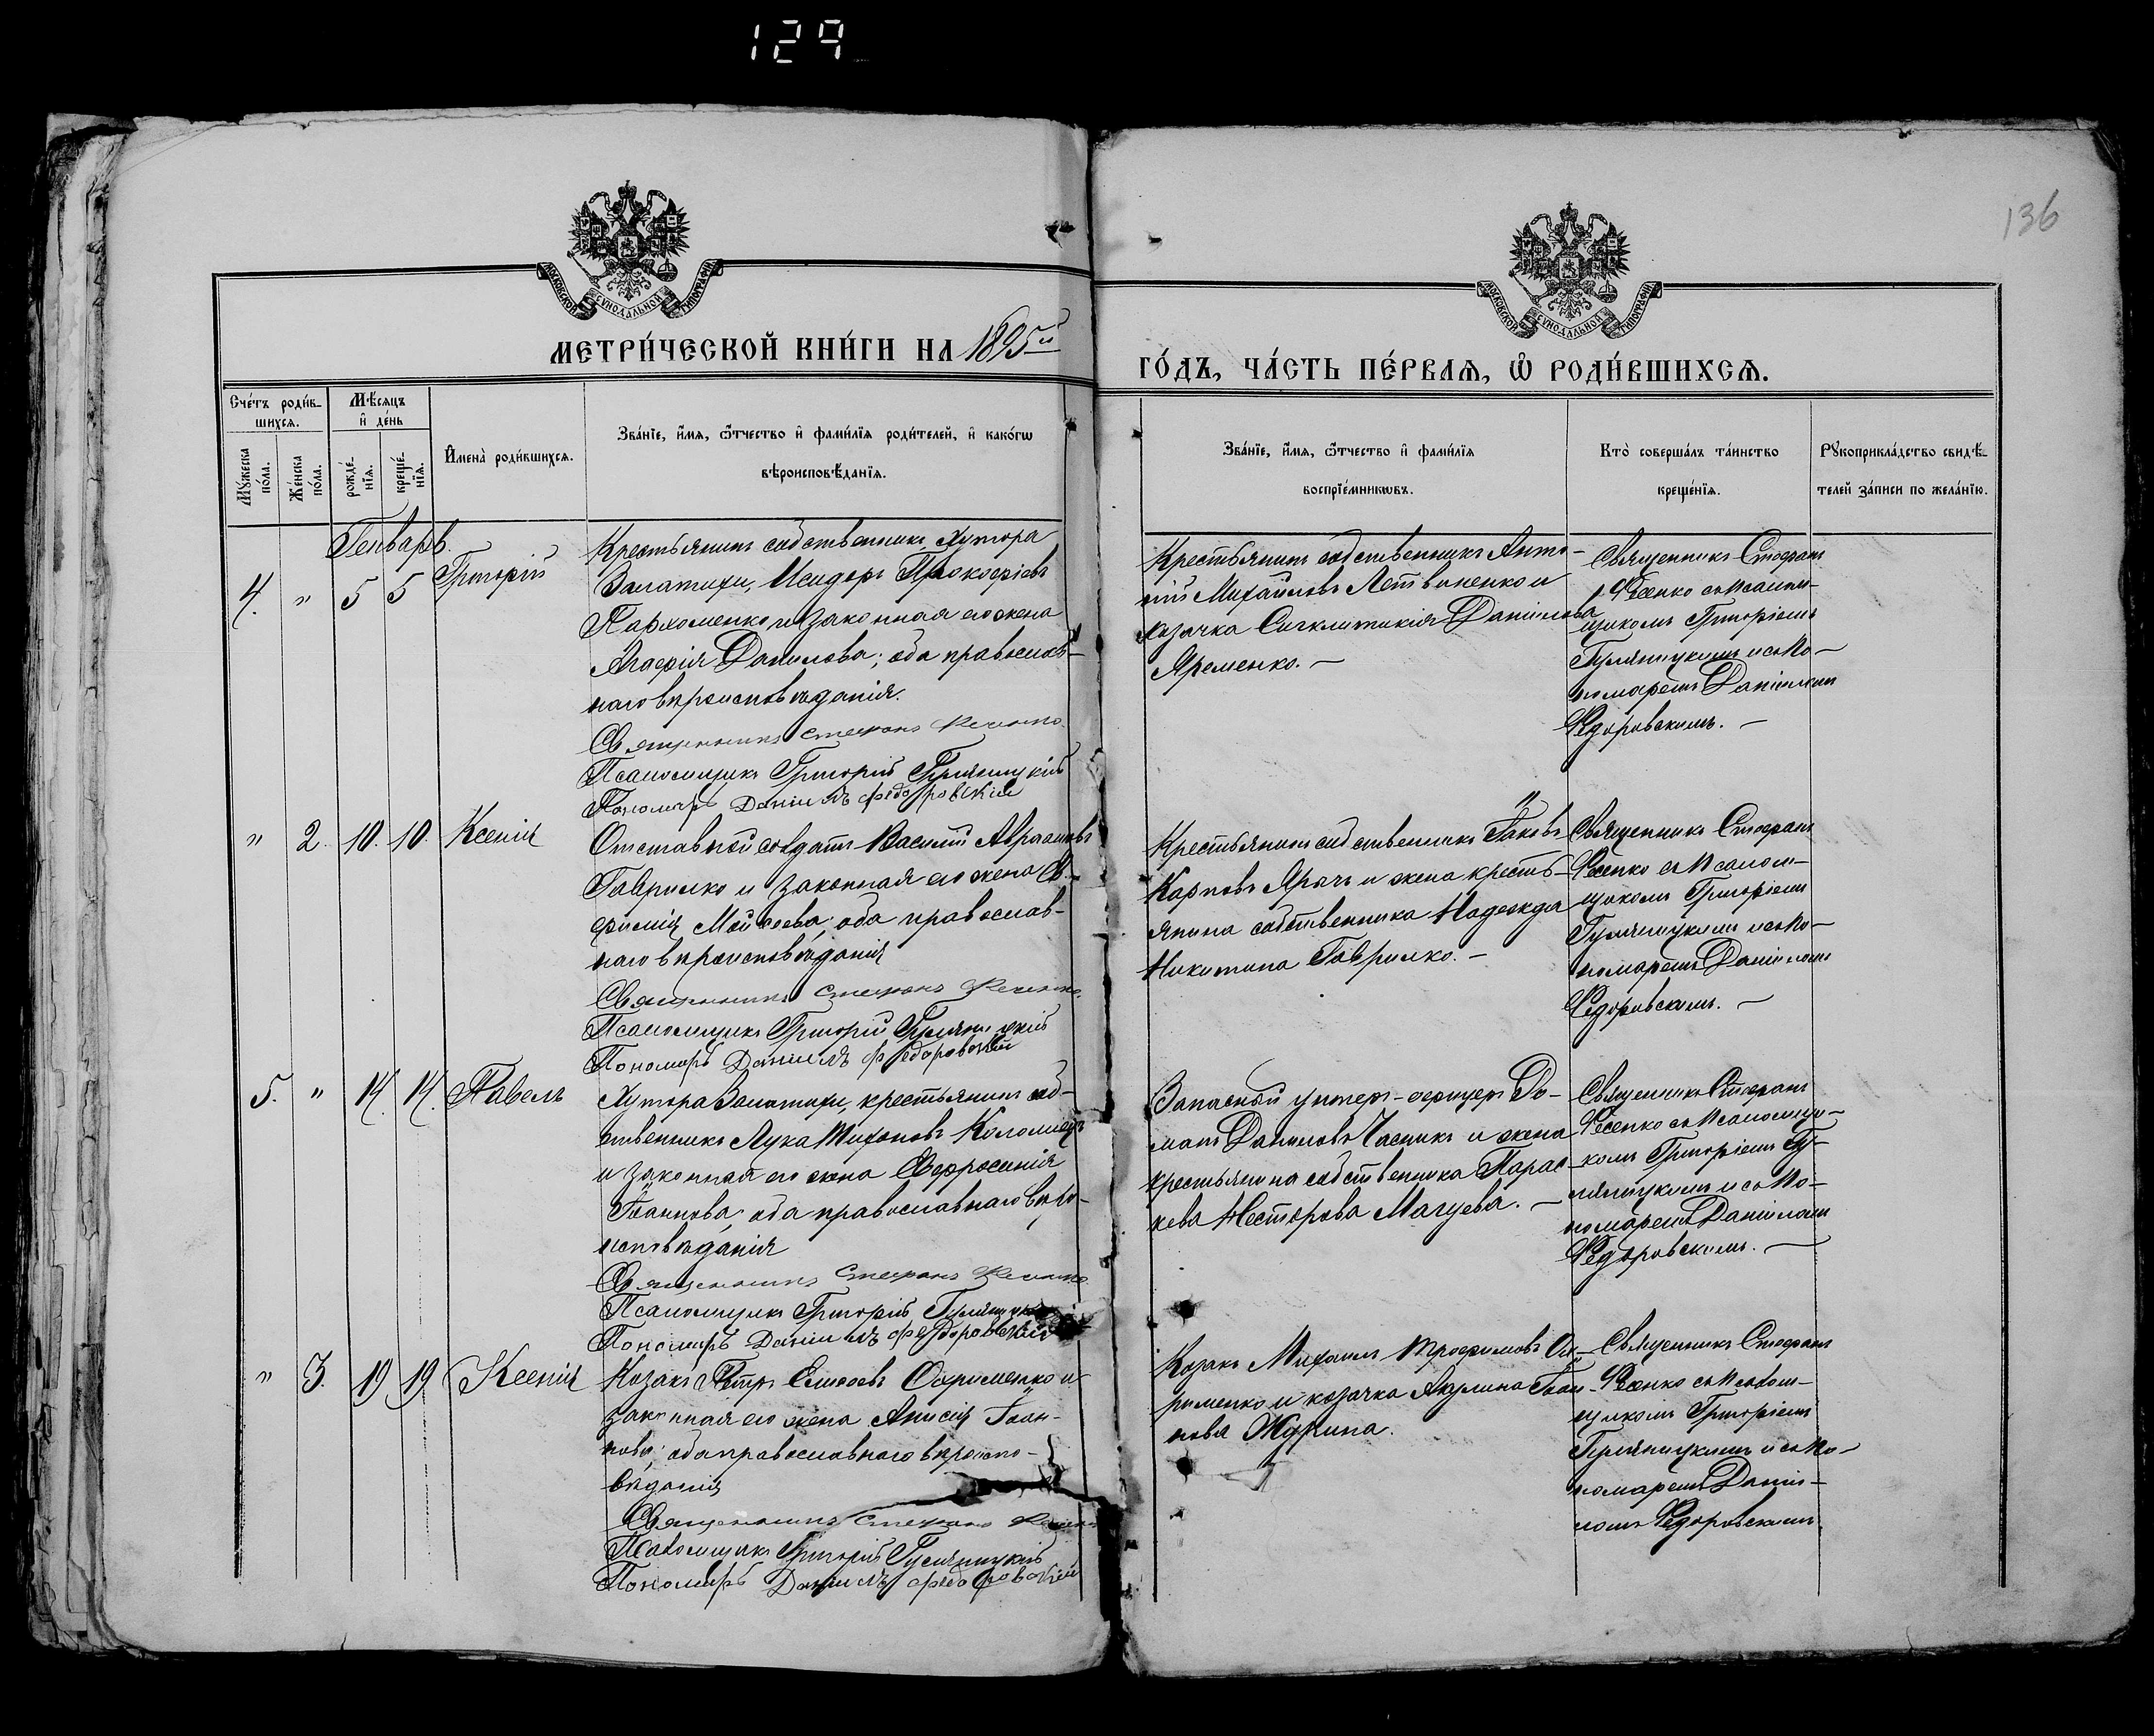 129
136
МОСКОВСКОЙ СѴНОДАЛЬНОЙ ТИПОГРАФІИ
МОСКОВСКОЙ СѴНОДАЛЬНОЙ ТИПОГРАФІИ
МЕТРИ́ЧЕСКОЙ КНИ́ГИ НА 1895й
ГО́ДЪ, ЧА́СТЬ ПЕ́РВАЯ, Ѡ҆ РОДИ́ВШИХСЯ.
Сче́тъ роди́в-
шихся.
Мꙋ́жеска по́ла.
Же́нска по́ла.
Мѣ́сяцъ
и҆ де́нь
рожде́-
нїя.
креще́-
нїя.
И҆мена̀ роди́вшихся.
Зва́нїе, и҆́мя, ѻ҆́тчество и҆ фами́лїя роди́телей, и҆ како́гѡ
вѣроисповѣ́данїя.
Зва́нїе, и҆́мя, ѻ҆́тчество и҆ фами́лїя
воспрїе́мникѡвъ.
Кто̀ соверша́лъ та́инство
креще́нїя.
Рꙋкоприкла́дство свидѣ́-
телей за́писи по жела́нїю.
Генварь.
4. " 5 5 Григорій
Крестьянинъ собственникъ хутора
Залатихи, Исидоръ Прокофіевъ
Пархоменко и законная его жена
Агафія Данилова; оба православ-
наго вѣроисповѣданія.
Священникъ Стефанъ
Псаломщикъ Григорій Гуляницкій
Пономарь Даніилъ Федоровскій
Крестьянинъ собственникъ Анто-
ній Михайловъ Летвиненко и
козачка Сигклитикія Даніилова
Яременко. —
Священникъ Стефанъ
Фесенко съ псалом-
щикомъ Григоріемъ
Гуляницкимъ и съ по-
номаремъ Даніиломъ
Федоровскимъ. —
" 2. 10. 10. Ксенія
Отставной солдатъ Василій Авраамовъ
Гаврилко и законная его жена Ев-
фимія Мойсеева; оба православ-
наго вѣроисповѣданія
Священникъ Стефанъ
Псаломщикъ Григорій Гуляницкій
Пономарь Даніилъ Федоровскій
Крестьянинъ собственникъ Іаковъ
Карповъ и жена кресть-
янина собственника Надежда
Никитина Гаврилко. —
Священникъ Стефанъ
Фесенко съ псалом-
щикомъ Григоріемъ
Гуляницкимъ и съ по-
номаремъ Даніиломъ
Федоровскимъ. —
5. " 14. 14. Павелъ
Хутора Залатихи, крестьянинъ соб-
ственникъ Лука Тихоновъ Коломіецъ
и законная его жена Евфросинія
Іоаннова; оба православнаго вѣро-
исповѣданія
Священникъ Стефанъ
Псаломщикъ Григорій Гуляницкій
Пономарь Даніилъ Федоровскій
Запасный унтеръ-офицеръ Ро-
манъ Даниловъ Часникъ и жена
крестьянина собственника Парас-
кева Несторова Магуева. —
Священникъ Стефанъ
Фесенко съ псаломщи-
комъ Григоріемъ Гу-
ляницкимъ и съ по-
номаремъ Даніиломъ
Федоровскимъ. —
" 3. 19 19 Ксенія
Козакъ Петръ Елисеевъ Охрименко и
законная его жена Анисія Іоан-
нова; оба православнаго вѣроиспо-
вѣданія
Священникъ Стефанъ
Псаломщикъ Григорій Гуляницкій
Пономарь Даніилъ Федоровскій
Козакъ Михаилъ Трофимовъ Ох-
рименко и козачка Акулина Іоан-
нова Журина.
Священникъ Стефанъ
Фесенко съ псалом-
щикомъ Григоріемъ
Гуляницкимъ и съ по-
номаремъ Даніи-
ломъ Федоровскимъ